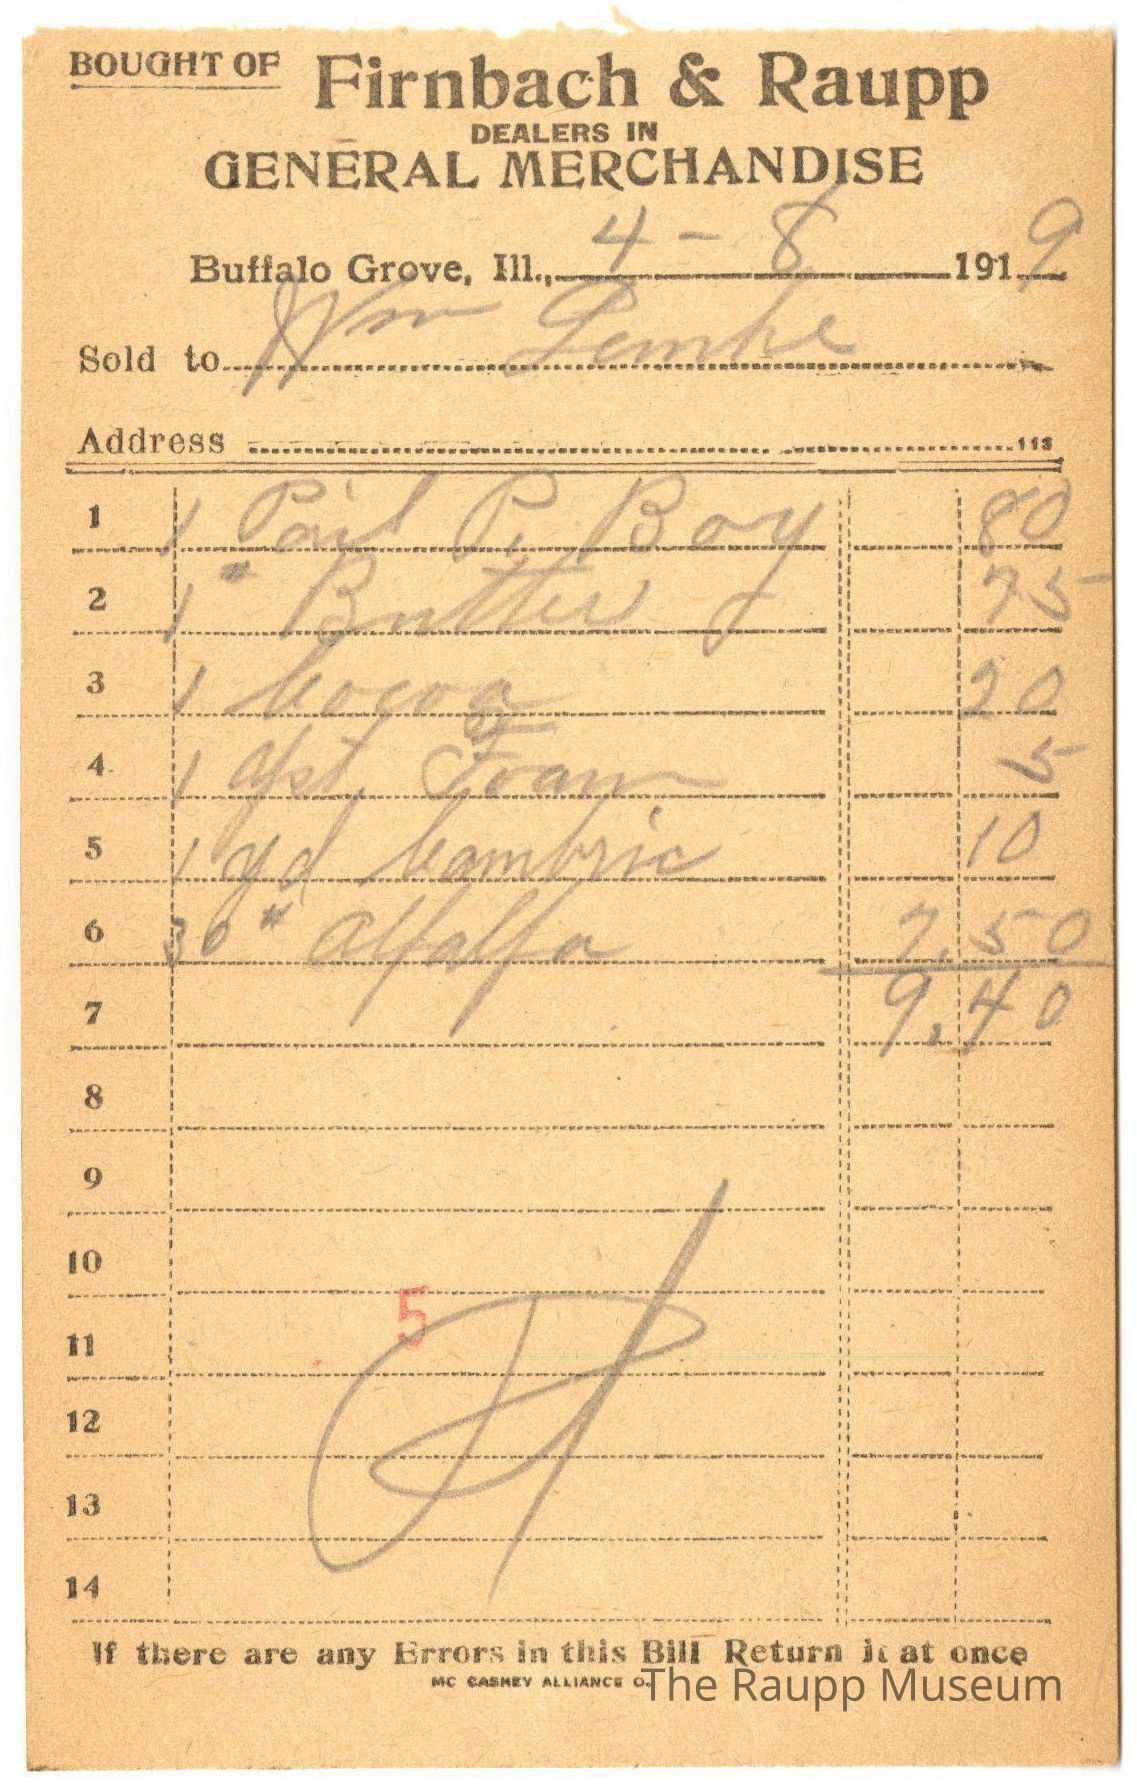 BOUGHT OF Firnbach & Raupp
DEALERS IN
GENERAL MERCHANDISE
Buffalo Grove, Ill., 4 - 8 1919
Sold to Wm Lemke
Address 113
1 1 Pail P. Boy 80
2 1 # Butter 75
3 1 Cocoa 20
4 1 Yst Foam 5
5 1 yd Cambric 10
6 30 # Alfalfa 7.50
7 9.40
8
9
10
5
11
12
13
14
If there are any Errors in this Bill Return it at once
MC CASKEY ALLIANCE O.
The Raupp Museum